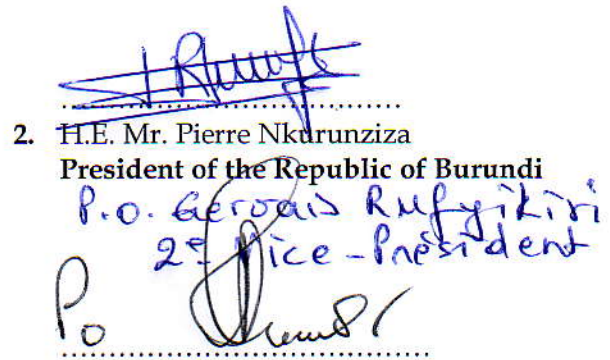 ..............................
2. H.E. Mr. Pierre Nkurunziza
President of the Republic of Burundi
P.o. Gervais Rufyikiri
2e Vice-Président
Po
..............................